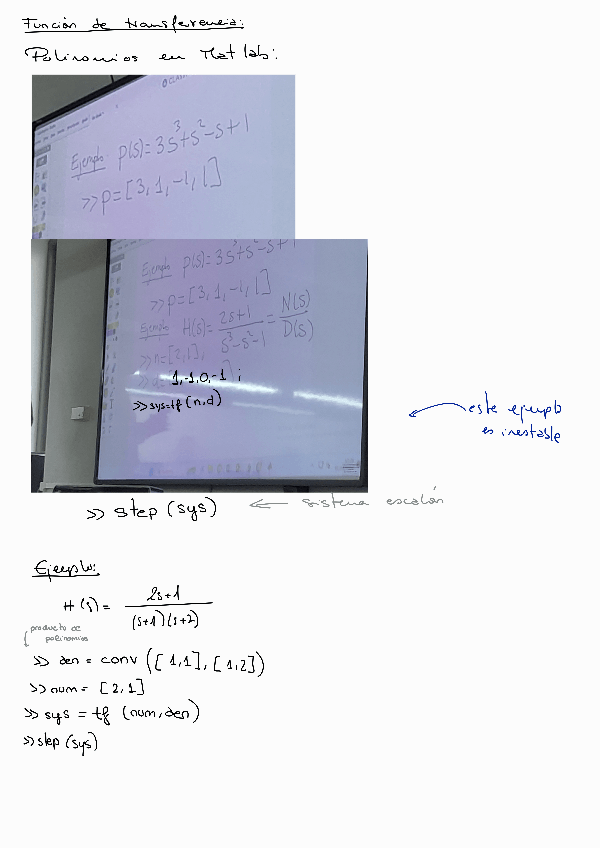 Función de transferencia:
Polinomios en Matlab:
Ejemplo: p(s)=3s³+s²-s+1
>>p=[3,1,-1,1]
Ejemplo: p(s)=3s³+s²-s+1
>>p=[3,1,-1,1]
Ejemplo: H(s)= 2s+1 / s³-s²-1 = N(s) / D(s)
>>n=[2,1];
1,-1,0,-1 ;
>>sys=tf(n,d)
este ejemplo
es inestable
>> step(sys) ← sistema escalón
Ejemplo:
H(s)= 2s+1 / (s+1)(s+2)
producto de
polinomios
>> den = conv([1,1],[1,2])
>> num= [2,1]
>> sys = tf (num,den)
>> step(sys)